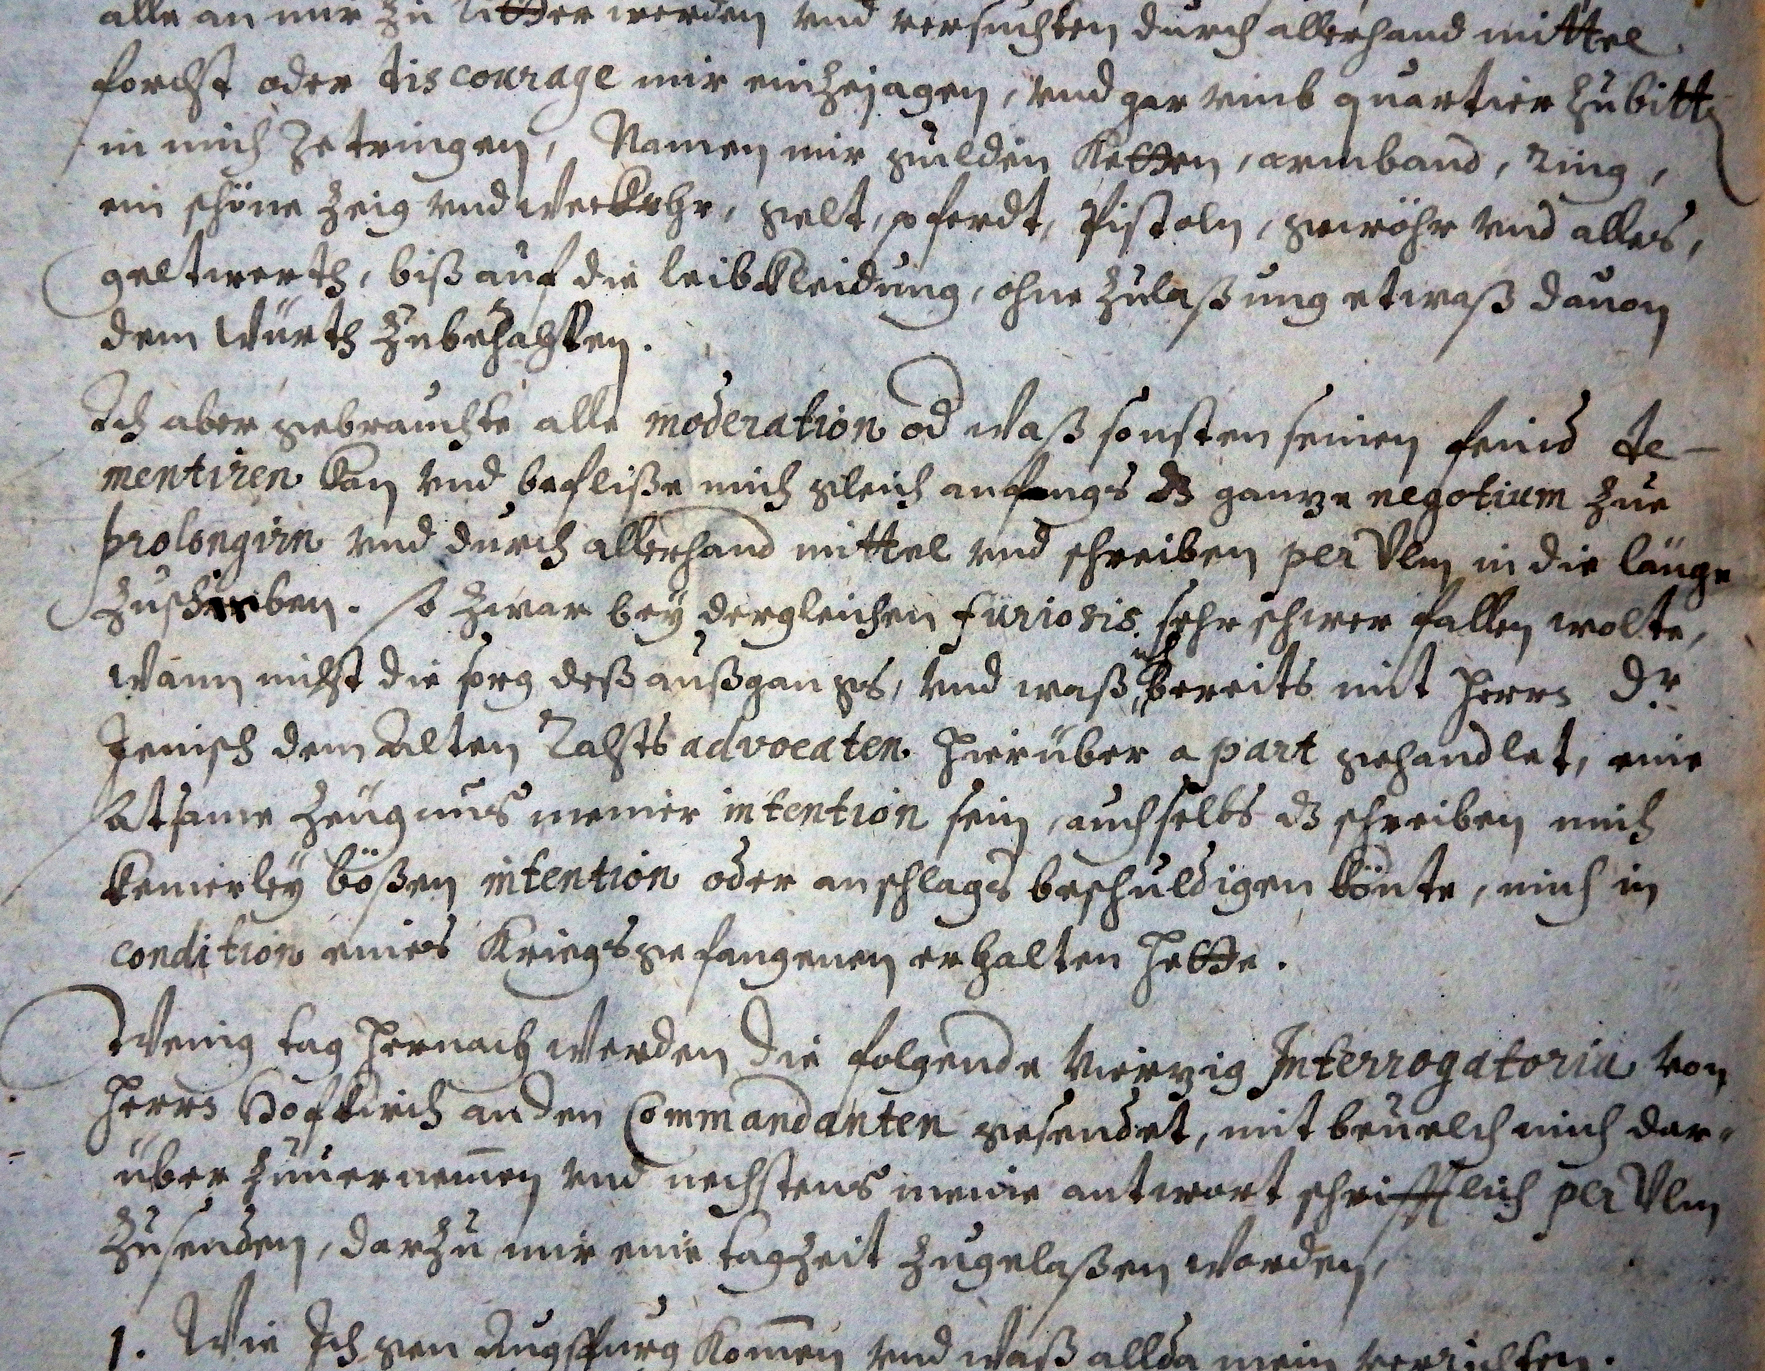 alle an mir zu Ritter werden vnd versuchten durch allerhand mittel
forcht oder discourage mir einzejagen, vnd gar vmb quartier zubitt
in mich zetringen, Namen mir gulden Ketten, armband, Ring,
ein schöne Zeig vnd Weckvhr, gelt, pferdt, Pistoln, gewöhr vnd alles,
geltwerth, biß auf die leibkleidung, ohne zulaßung etwaß dauon
dem Würth zubehalten.
Ich aber gebrauchte alle moderation od waß sonsten seinen feind de-
mentiren kan vnd befliße mich gleich anfangs dz gantze negotium zue
prolongirn vnd durch allerhand mittel vnd schreiben per Vlm in die länge
zuschieben. so zwar bey dergleichen furiosis sehr schwer fallen wolte,
wann nicht die sorg deß außgangs, vnd waß ich bereits mit Herrn Dr.
Jenisch dem Alten Rahts advocaten hierüber a part gehandlet, eine
satsame zeugnus meiner intention sein, auch selbs dz schreiben mich
keinerley bößen intention oder anschlags beschuldigen könte, mich in
condition eines Kriegsgefangenen erhalten hette.
Wenig tag hernach werden die folgende viertzig Interrogatoria von
Herrn Hofkirch an den Commandanten gesendet, mit beuelch mich dar-
über zuuernemen vnd nechstens meine antwort schrifftlich per Vlm
zusenden, darzu mir eine tagzeit zugelaßen worden,
1. Wie Ich gen Augspurg komen vnd waß allda mein verrichten.